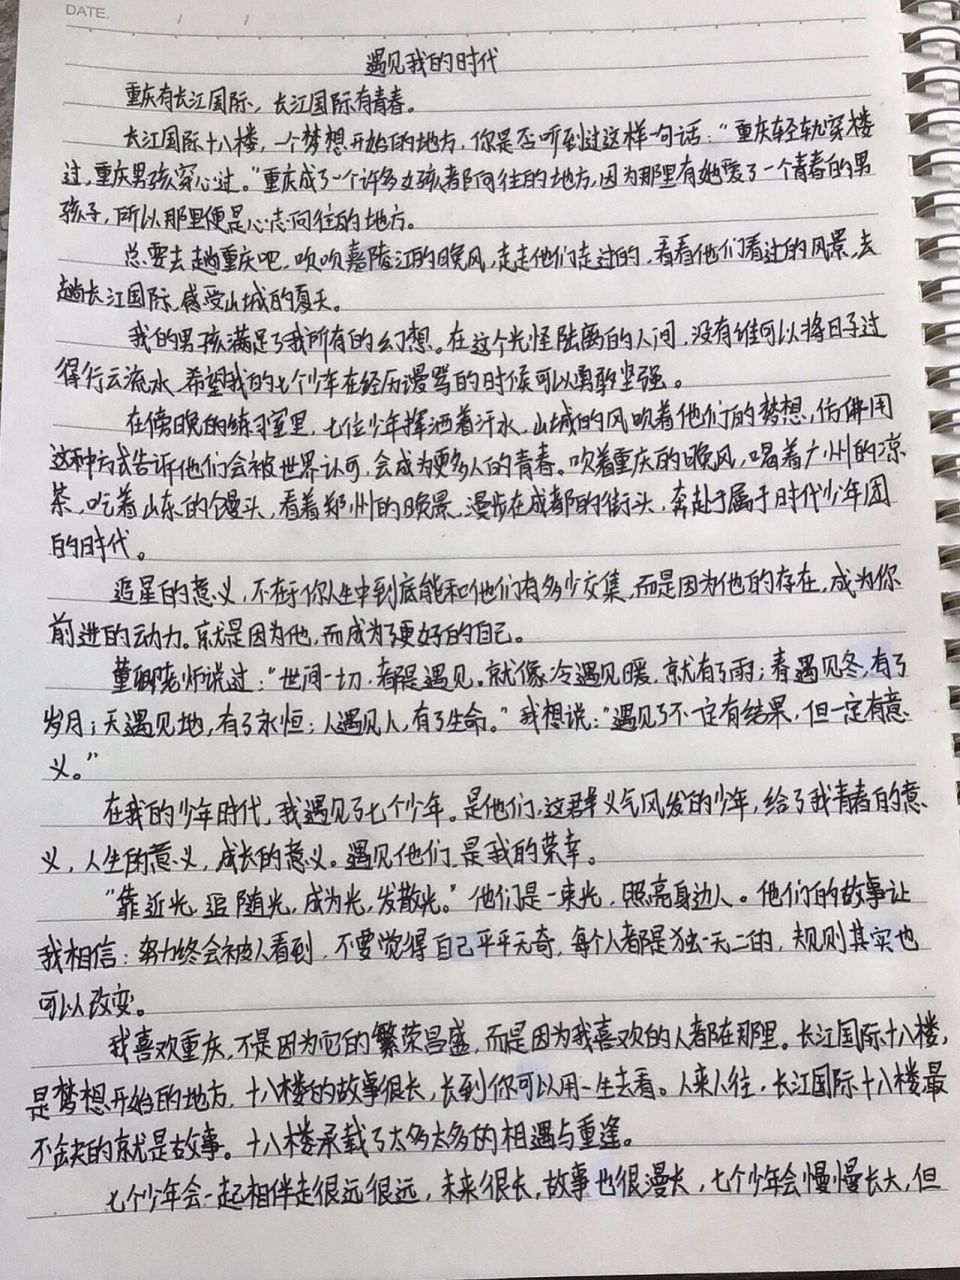 DATE. / /
遇见我的时代
重庆有长江国际，长江国际有青春。
长江国际十八楼，一个梦想开始的地方，你是否听到过这样一句话：“重庆轻轨穿楼
过，重庆男孩穿心过。”重庆成了一个许多女孩都向往的地方，因为那里有她爱了一个青春的男
孩子，所以那里便是心志向往的地方。
总要去趟重庆吧，吹吹嘉陵江的晚风，走走他们走过的，看看他们看过的风景，去
趟长江国际，感受山城的夏天。
我的男孩满足了我所有的幻想。在这个光怪陆离的人间，没有谁可以将日子过
得行云流水，希望我的七个少年在经历谩骂的时候可以勇敢坚强。
在傍晚的练习室里，七位少年挥洒着汗水，山城的风吹着他们的梦想，仿佛用
这种方式告诉他们会被世界认可，会成为更多人的青春。吹着重庆的晚风，喝着广州的凉
茶，吃着山东的馒头，看着郑州的晚景，漫步在成都的街头，奔赴于属于时代少年团
的时代。
追星的意义，不在于你人生中到底能和他们有多少交集，而是因为他的存在，成为你
前进的动力。就是因为他，而成为了更好的自己。
董卿老师说过：“世间一切，都是遇见。就像冷遇见暖，就有了雨；春遇见冬，有了
岁月；天遇见地，有了永恒；人遇见人，有了生命。”我想说：“遇见了不一定有结果，但一定有意
义。”
在我的少年时代，我遇见了七个少年。是他们，这群义气风发的少年，给了我青春的意
义，人生的意义，成长的意义。遇见他们是我的荣幸。
“靠近光，追随光，成为光，发散光。”他们是一束光，照亮身边人。他们的故事让
我相信：努力终会被人看到，不要觉得自己平平无奇，每个人都是独一无二的，规则其实也
可以改变。
我喜欢重庆，不是因为它的繁荣昌盛，而是因为我喜欢的人都在那里。长江国际十八楼，
是梦想开始的地方，十八楼的故事很长，长到你可以用一生去看。人来人往，长江国际十八楼最
不缺的就是故事。十八楼承载了太多太多的相遇与重逢。
七个少年会一起相伴走很远很远，未来很长，故事也很漫长，七个少年会慢慢长大，但